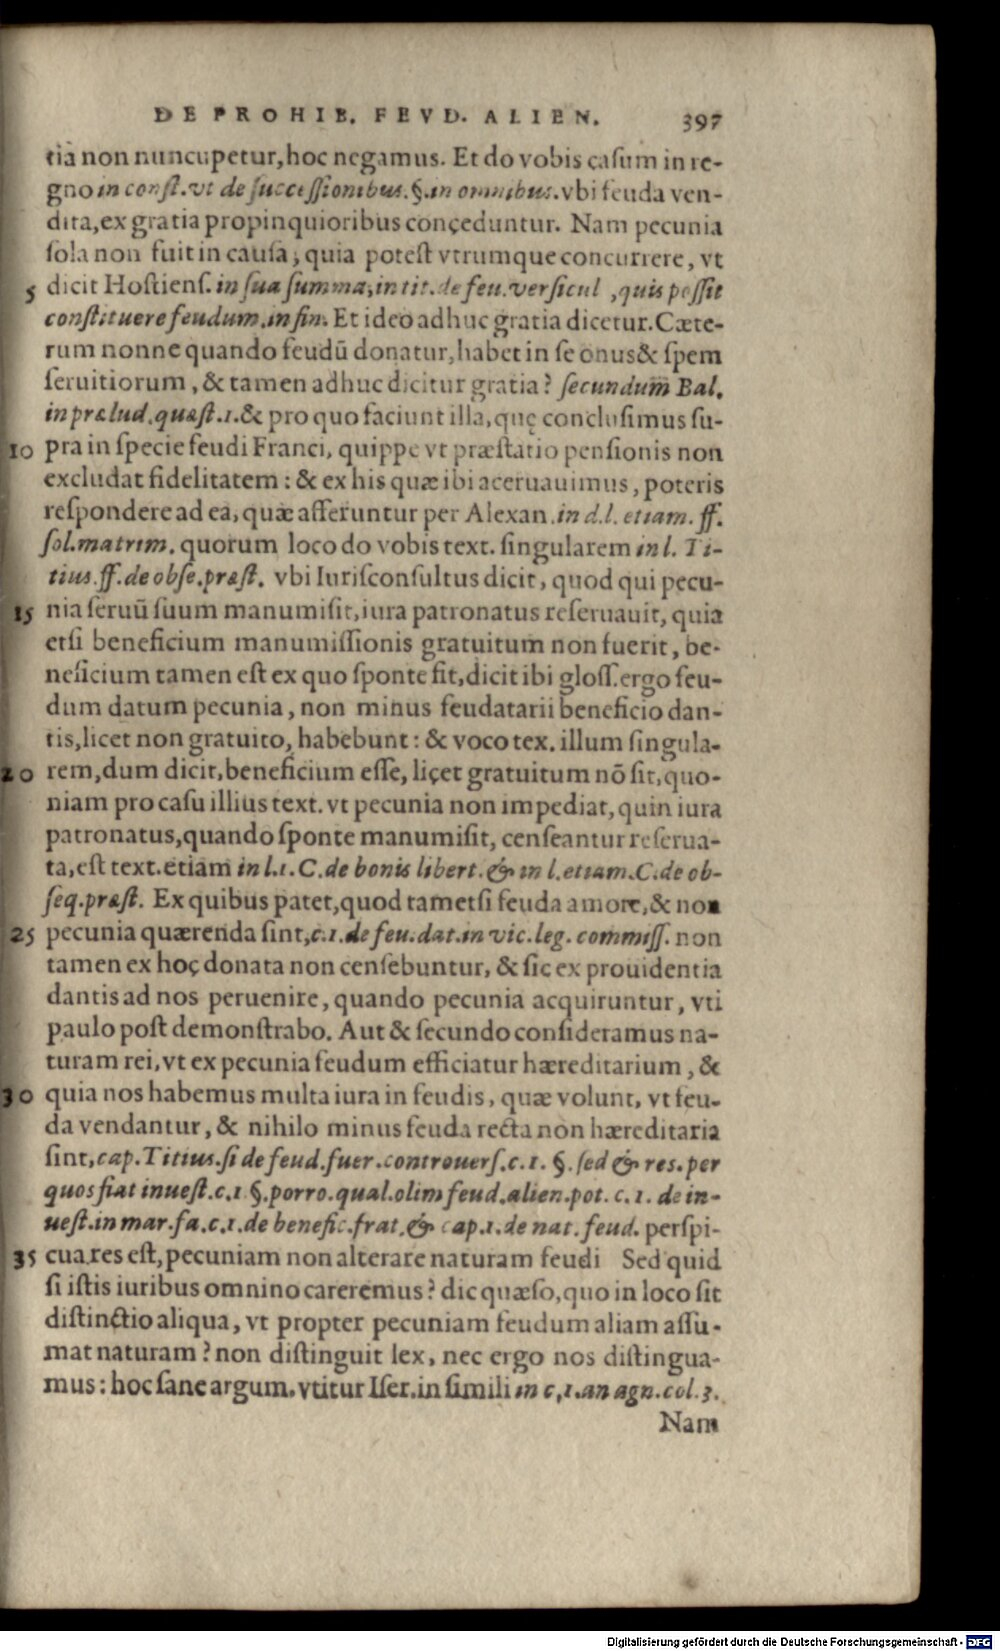 DE PROHIB. FEVD. ALIEN. 397
tia non nuncupetur, hoc negamus. Et do vobis casum in re-
gno in const. vt de successionibus. §. in omnibus. vbi feuda ven-
dita, ex gratia propinquioribus conçeduntur. Nam pecunia
sola non fuit in causa, quia potest vtrumque concurrere, vt
5 dicit Hostiens. in sua summa, in tit. de feu. versicul, quis possit
constituere feudum. in fin. Et ideo adhuc gratia dicetur. Cæte-
rum nonne quando feudū donatur, habet in se onus & spem
seruitiorum, & tamen adhuc dicitur gratia? secundum Bal.
in prælud. quæst. 1. & pro quo faciunt illa, quę conclusimus su-
10 pra in specie feudi Franci, quippe vt præstatio pensionis non
excludat fidelitatem: & ex his quæ ibi aceruauimus, poteris
respondere ad ea, quæ afferuntur per Alexan. in d. l. etiam. ff.
sol. matrim. quorum loco do vobis text. singularem in l. Ti-
tius. ff. de obse. præst. vbi Iurisconsultus dicit, quod qui pecu-
15 nia seruū suum manumisit, iura patronatus reseruauit, quia
etsi beneficium manumissionis gratuitum non fuerit, be-
neficium tamen est ex quo sponte fit, dicit ibi gloss. ergo feu-
dum datum pecunia, non minus feudatarii beneficio dan-
tis, licet non gratuito, habebunt: & voco tex. illum singula-
20 rem, dum dicit, beneficium esse, liçet gratuitum nō sit, quo-
niam pro casu illius text. vt pecunia non impediat, quin iura
patronatus, quando sponte manumisit, censeantur reserua-
ta, est text. etiam in l. 1. C. de bonis libert. & in l. etiam. C. de ob-
seq. præst. Ex quibus patet, quod tametsi feuda amore, & non
25 pecunia quærenda sint, c. 1. de feu. dat. in vic. leg. commiss. non
tamen ex hoç donata non censebuntur, & sic ex prouidentia
dantis ad nos peruenire, quando pecunia acquiruntur, vti
paulo post demonstrabo. Aut & secundo consideramus na-
turam rei, vt ex pecunia feudum efficiatur hæreditarium, &
30 quia nos habemus multa iura in feudis, quæ volunt, vt feu-
da vendantur, & nihilo minus feuda recta non hæreditaria
sint, cap. Titius. si de feud. fuer. controuers. c. 1. §. sed & res. per
quos fiat inuest. c. 1 §. porro. qual. olim feud. alien. pot. c. 1. de in-
uest. in mar. fa. c. 1. de benefic. frat. & cap. 1. de nat. feud. perspi-
35 cua res est, pecuniam non alterare naturam feudi Sed quid
si istis iuribus omnino careremus? dic quæso, quo in loco sit
distinctio aliqua, vt propter pecuniam feudum aliam assu-
mat naturam? non distinguit lex, nec ergo nos distingua-
mus: hoc sane argum. vtitur Iser. in simili in c, 1. an agn. col. 3.
Nam
Digitalisierung gefördert durch die Deutsche Forschungsgemeinschaft - DFG